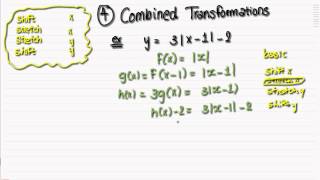 shift x
stretch x
stretch y
shift y
④ Combined Transformations
ex y = 3|x-1|-2
F(x) = |x| basic
g(x) = F(x-1) = |x-1| shift x
stretch x
h(x) = 3g(x) = 3|x-1| stretch y
h(x)-2 = 3|x-1|-2 shift y